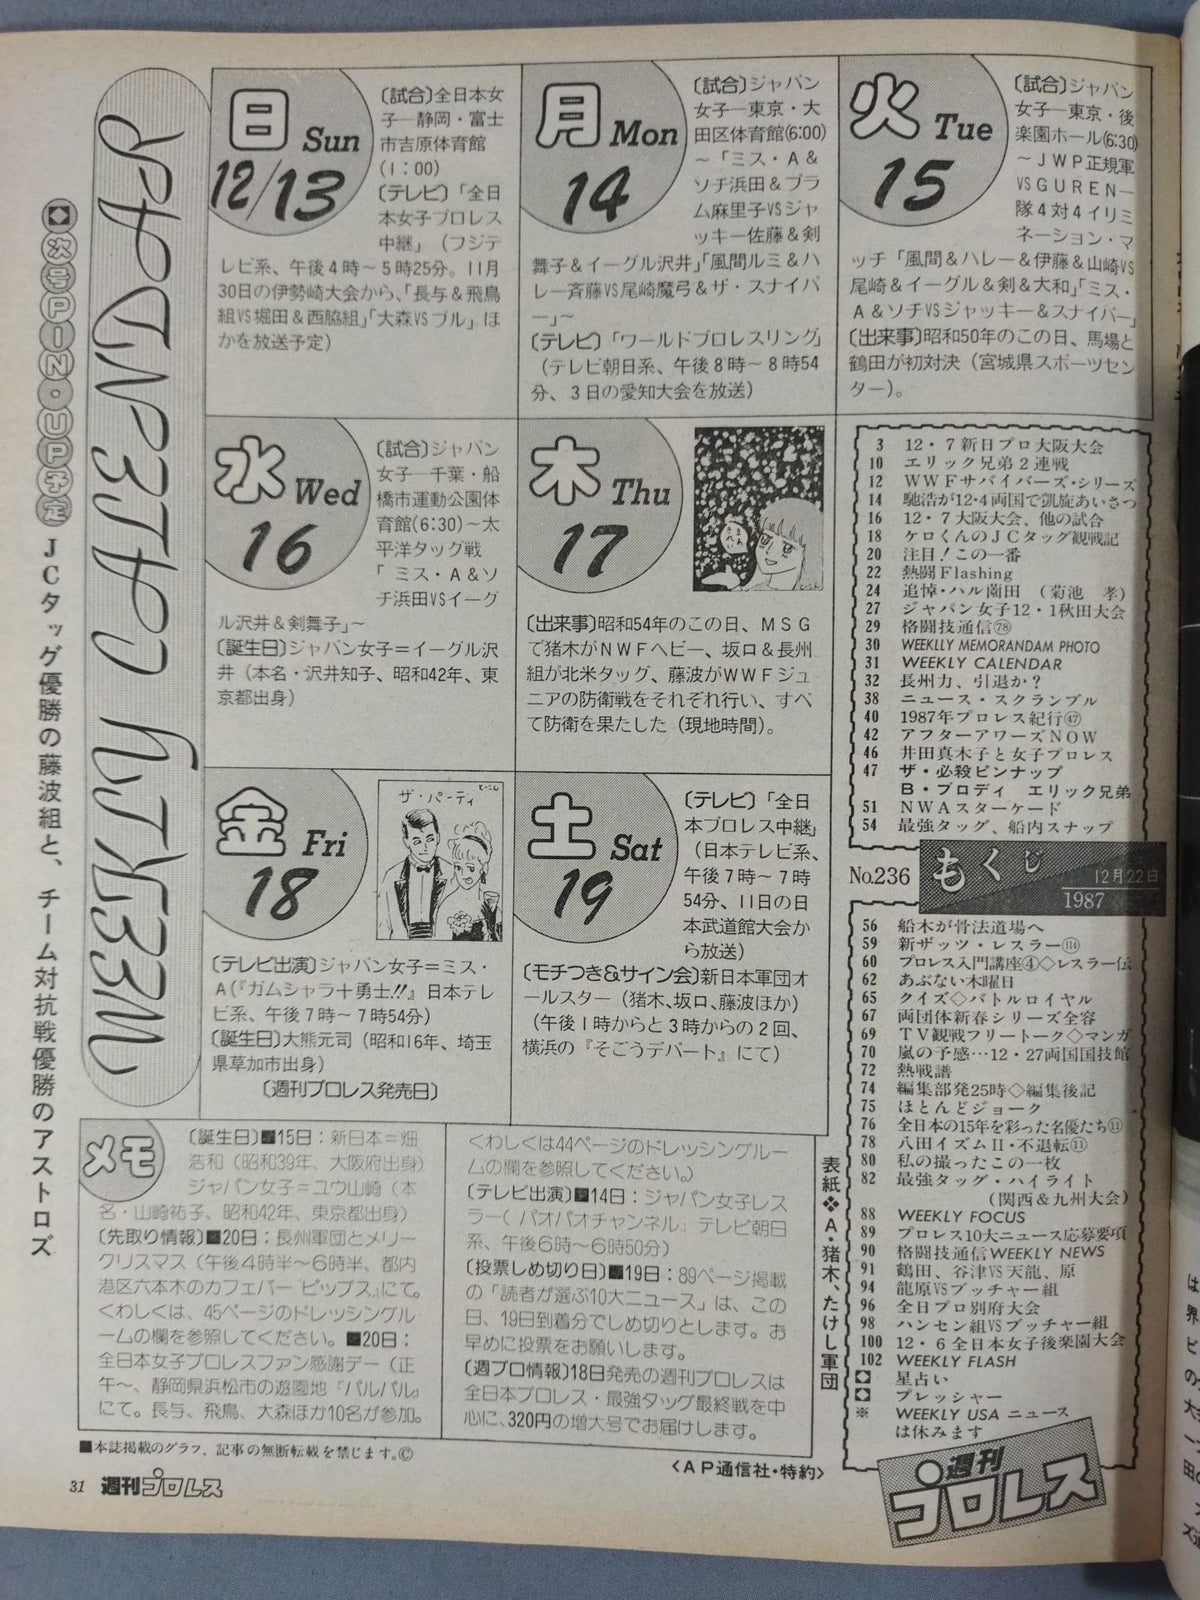 WEEKLY CALENDAR
◆次号PINUP予定 JCタッグ優勝の藤波組と、チーム対抗戦優勝のアストロズ
日 Sun
12/13
〔試合〕全日本女
子―静岡・富士
市吉原体育館
(1:00)
〔テレビ〕「全日
本女子プロレス
中継」(フジテ
レビ系、午後4時〜5時25分。11月
30日の伊勢崎大会から、「長与&飛鳥
組VS堀田&西脇組」「大森VSブル」ほ
かを放送予定)
月 Mon
14
〔試合〕ジャパン
女子―東京・大
田区体育館(6:00)
〜「ミス・A&
ソチ浜田&プラ
ム麻里子VSジャ
ッキー佐藤&剣
舞子&イーグル沢井」「風間ルミ&ハ
レー斉藤VS尾崎魔弓&ザ・スナイパ
ー」〜
〔テレビ〕「ワールドプロレスリング」
(テレビ朝日系、午後8時〜8時54
分、3日の愛知大会を放送)
火 Tue
15
〔試合〕ジャパン
女子―東京・後
楽園ホール(6:30)
〜JWP正規軍
VSGUREN一
隊4対4イリミ
ネーション・マ
ッチ「風間&ハレー&伊藤&山崎VS
尾崎&イーグル&剣&大和」「ミス・
A&ソチVSジャッキー&スナイパー」
〔出来事〕昭和50年のこの日、馬場と
鶴田が初対決(宮城県スポーツセン
ター)。
水 Wed
16
〔試合〕ジャパン
女子―千葉・船
橋市運動公園体
育館(6:30)〜太
平洋タッグ戦
「ミス・A&ソ
チ浜田VSイーグ
ル沢井&剣舞子」〜
〔誕生日〕ジャパン女子=イーグル沢
井(本名・沢井知子、昭和42年、東
京都出身)
木 Thu
17
〔出来事〕昭和54年のこの日、MSG
で猪木がNWFヘビー、坂口&長州
組が北米タッグ、藤波がWWFジュ
ニアの防衛戦をそれぞれ行い、すべ
て防衛を果たした(現地時間)。
金 Fri
18
ザ・パーティ
〔テレビ出演〕ジャパン女子=ミス・
A(『ガムシャラ十勇士!!』日本テレ
ビ系、午後7時〜7時54分)
〔誕生日〕大熊元司(昭和16年、埼玉
県草加市出身)
〔週刊プロレス発売日〕
土 Sat
19
〔テレビ〕「全日
本プロレス中継」
(日本テレビ系、
午後7時〜7時
54分、11日の日
本武道館大会か
ら放送)
〔モチつき&サイン会〕新日本軍団オ
ールスター(猪木、坂口、藤波ほか)
(午後1時からと3時からの2回、
横浜の『そごうデパート』にて)
メモ
〔誕生日〕■15日:新日本=畑
浩和(昭和39年、大阪府出身)
ジャパン女子=ユウ山崎(本
名・山崎祐子、昭和42年、東京都出身)
〔先取り情報〕■20日:長州軍団とメリー
クリスマス(午後4時半〜6時半、都内
港区六本木のカフェバー『ピップス』にて。
くわしくは、45ページのドレッシングル
ームの欄を参照してください。■20日:
全日本女子プロレスファン感謝デー(正
午〜、静岡県浜松市の遊園地『パルパル』
にて。長与、飛鳥、大森ほか10名が参加。
くわしくは44ページのドレッシングルー
ムの欄を参照してください。)
〔テレビ出演〕■14日:ジャパン女子レス
ラー(『パオパオチャンネル』テレビ朝日
系、午後6時〜6時50分)
〔投票しめ切り日〕■19日:89ページ掲載
の「読者が選ぶ10大ニュース」は、この
日、19日到着分でしめ切りとします。お
早めに投票をお願いします。
〔週プロ情報〕18日発売の週刊プロレスは
全日本プロレス・最強タッグ最終戦を中
心に、320円の増大号でお届けします。
表紙❖A・猪木、たけし軍団
3 12・7新日プロ大阪大会
10 エリック兄弟2連戦
12 WWFサバイバーズ・シリーズ
14 馳浩が12・4両国で凱旋あいさつ
16 12・7大阪大会、他の試合
18 ケロくんのJCタッグ観戦記
20 注目!この一番
22 熱闘Flashing
24 追悼・ハル薗田 (菊池 孝)
27 ジャパン女子12・1秋田大会
29 格闘技通信㊆㊇
30 WEEKLY MEMORANDAM PHOTO
31 WEEKLY CALENDAR
32 長州力、引退か?
38 ニュース・スクランブル
40 1987年プロレス紀行㊼
42 アフターアワーズNOW
46 井田真木子と女子プロレス
47 ザ・必殺ピンナップ
B・ブロディ エリック兄弟
51 NWAスターケード
54 最強タッグ、船内スナップ
No.236 もくじ 12月22日
1987
56 船木が骨法道場へ
59 新ザッツ・レスラー(114)
60 プロレス入門講座④◇レスラー伝
62 あぶない木曜日
65 クイズ◇バトルロイヤル
67 両団体新春シリーズ全容
69 TV観戦フリートーク◇マンガ
70 嵐の予感…12・27両国国技館
72 熱戦譜
74 編集部発25時◇編集後記
75 ほとんどジョーク
76 全日本の15年を彩った名優たち⑪
78 八田イズムII・不退転⑪
80 私の撮ったこの一枚
82 最強タッグ・ハイライト
(関西&九州大会)
88 WEEKLY FOCUS
89 プロレス10大ニュース応募要項
90 格闘技通信WEEKLY NEWS
91 鶴田、谷津VS天龍、原
94 龍原VSブッチャー組
96 全日プロ別府大会
98 ハンセン組VSブッチャー組
100 12・6全日本女子後楽園大会
102 WEEKLY FLASH
◆ 星占い
◆ プレッシャー
※ WEEKLY USA ニュース
は休みます
■本誌掲載のグラフ、記事の無断転載を禁じます。©
〈AP通信社・特約〉
31 週刊プロレス
週刊プロレス